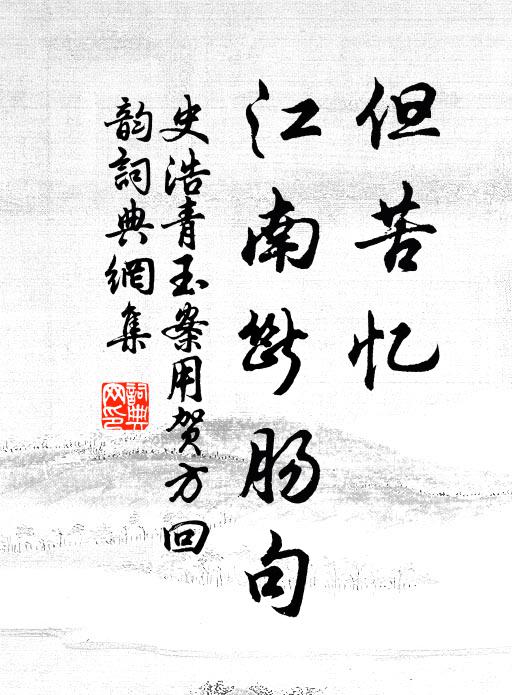 但苦忆
江南断肠句
史浩青玉案用贺方回
韵词典網集
詞典
网印